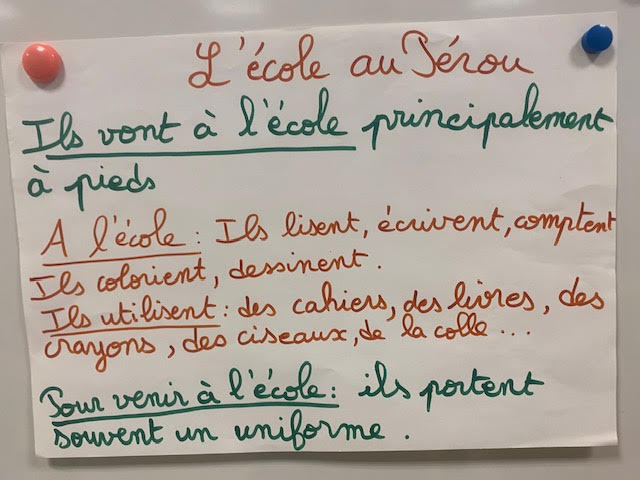 L'école au Pérou
Ils vont à l'école principalement
à pieds
A l'école : Ils lisent, écrivent, comptent
Ils colorient, dessinent.
Ils utilisent : des cahiers, des livres, des
crayons, des ciseaux, de la colle...
Pour venir à l'école : ils portent
souvent un uniforme.